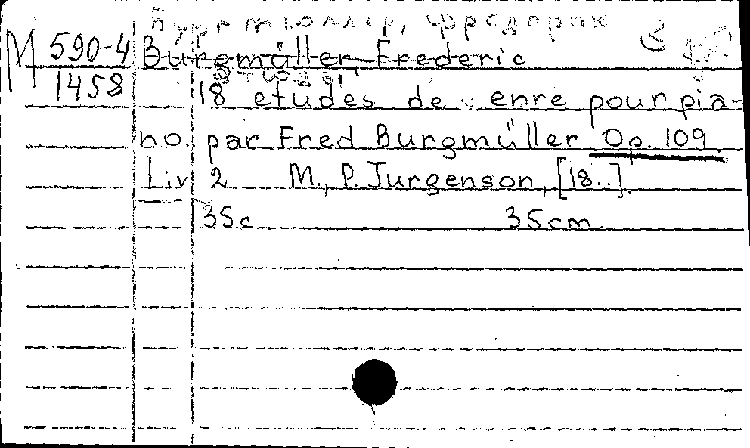 Бургмюллер, Фредерик
M 590-4 Burgmüller Frederic
1458 18 etudes de enre pour pia-
no par Fred Burgmüller Op. 109.
Liv 2 M., P. Jurgenson, [18..].
35c 35cm